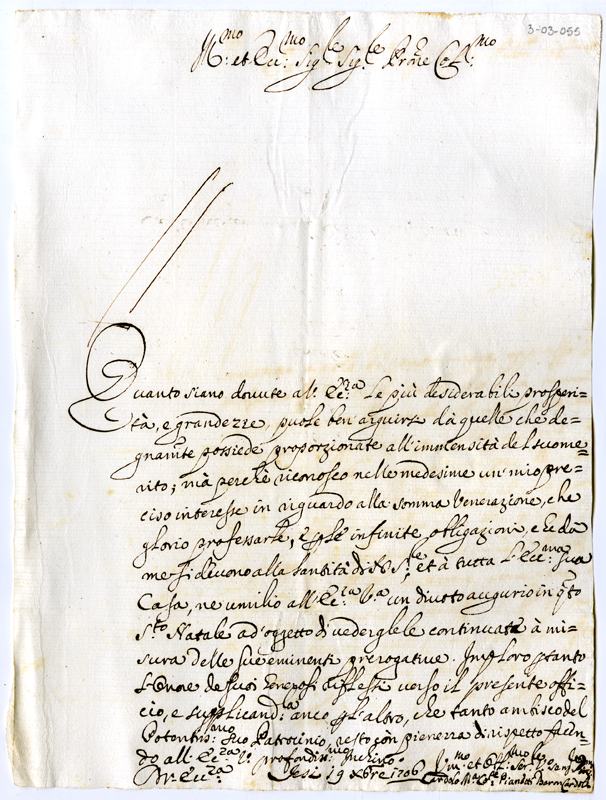 3-03-055
Ill:mo et Ecc:mo Sig:re Sig:re Prone Col:mo
Quanto siano dovute all' Ecc:za Le più desiderabili prosperi=
tà, e grandezze, puole ben arguirsi dà quelle che de=
gnam:te possiede proporzionate all'immensità del suo me=
rito; mà perche riconosco nelle medesime un mio pre=
ciso interesse in riguardo alla somma Venerazione, che
glorio professarle, e p le infinite obligazioni, che dà
me si devono alla Santità di N. S:re et à tutta L'Ecc:ma sua
Casa, ne umilio all' Ecc:za V:a un divoto augurio in q:to
S:to Natale ad'oggetto di vederglele continuate à mi=
sura delle sue eminenti prerogative. Imploro ptanto
L'Onore de suoi generosi riflessi verso il presente offi=
cio, e supplicand:la anco p l'altro, che tanto ambisco del
Potentiss:mo suo Patrocinio, resto con pienezza di rispetto facen=
do all' Ecc:za V:a profondiss:mo inchino
Di V: Ecc:za
Iesi 19 Xbre 1706